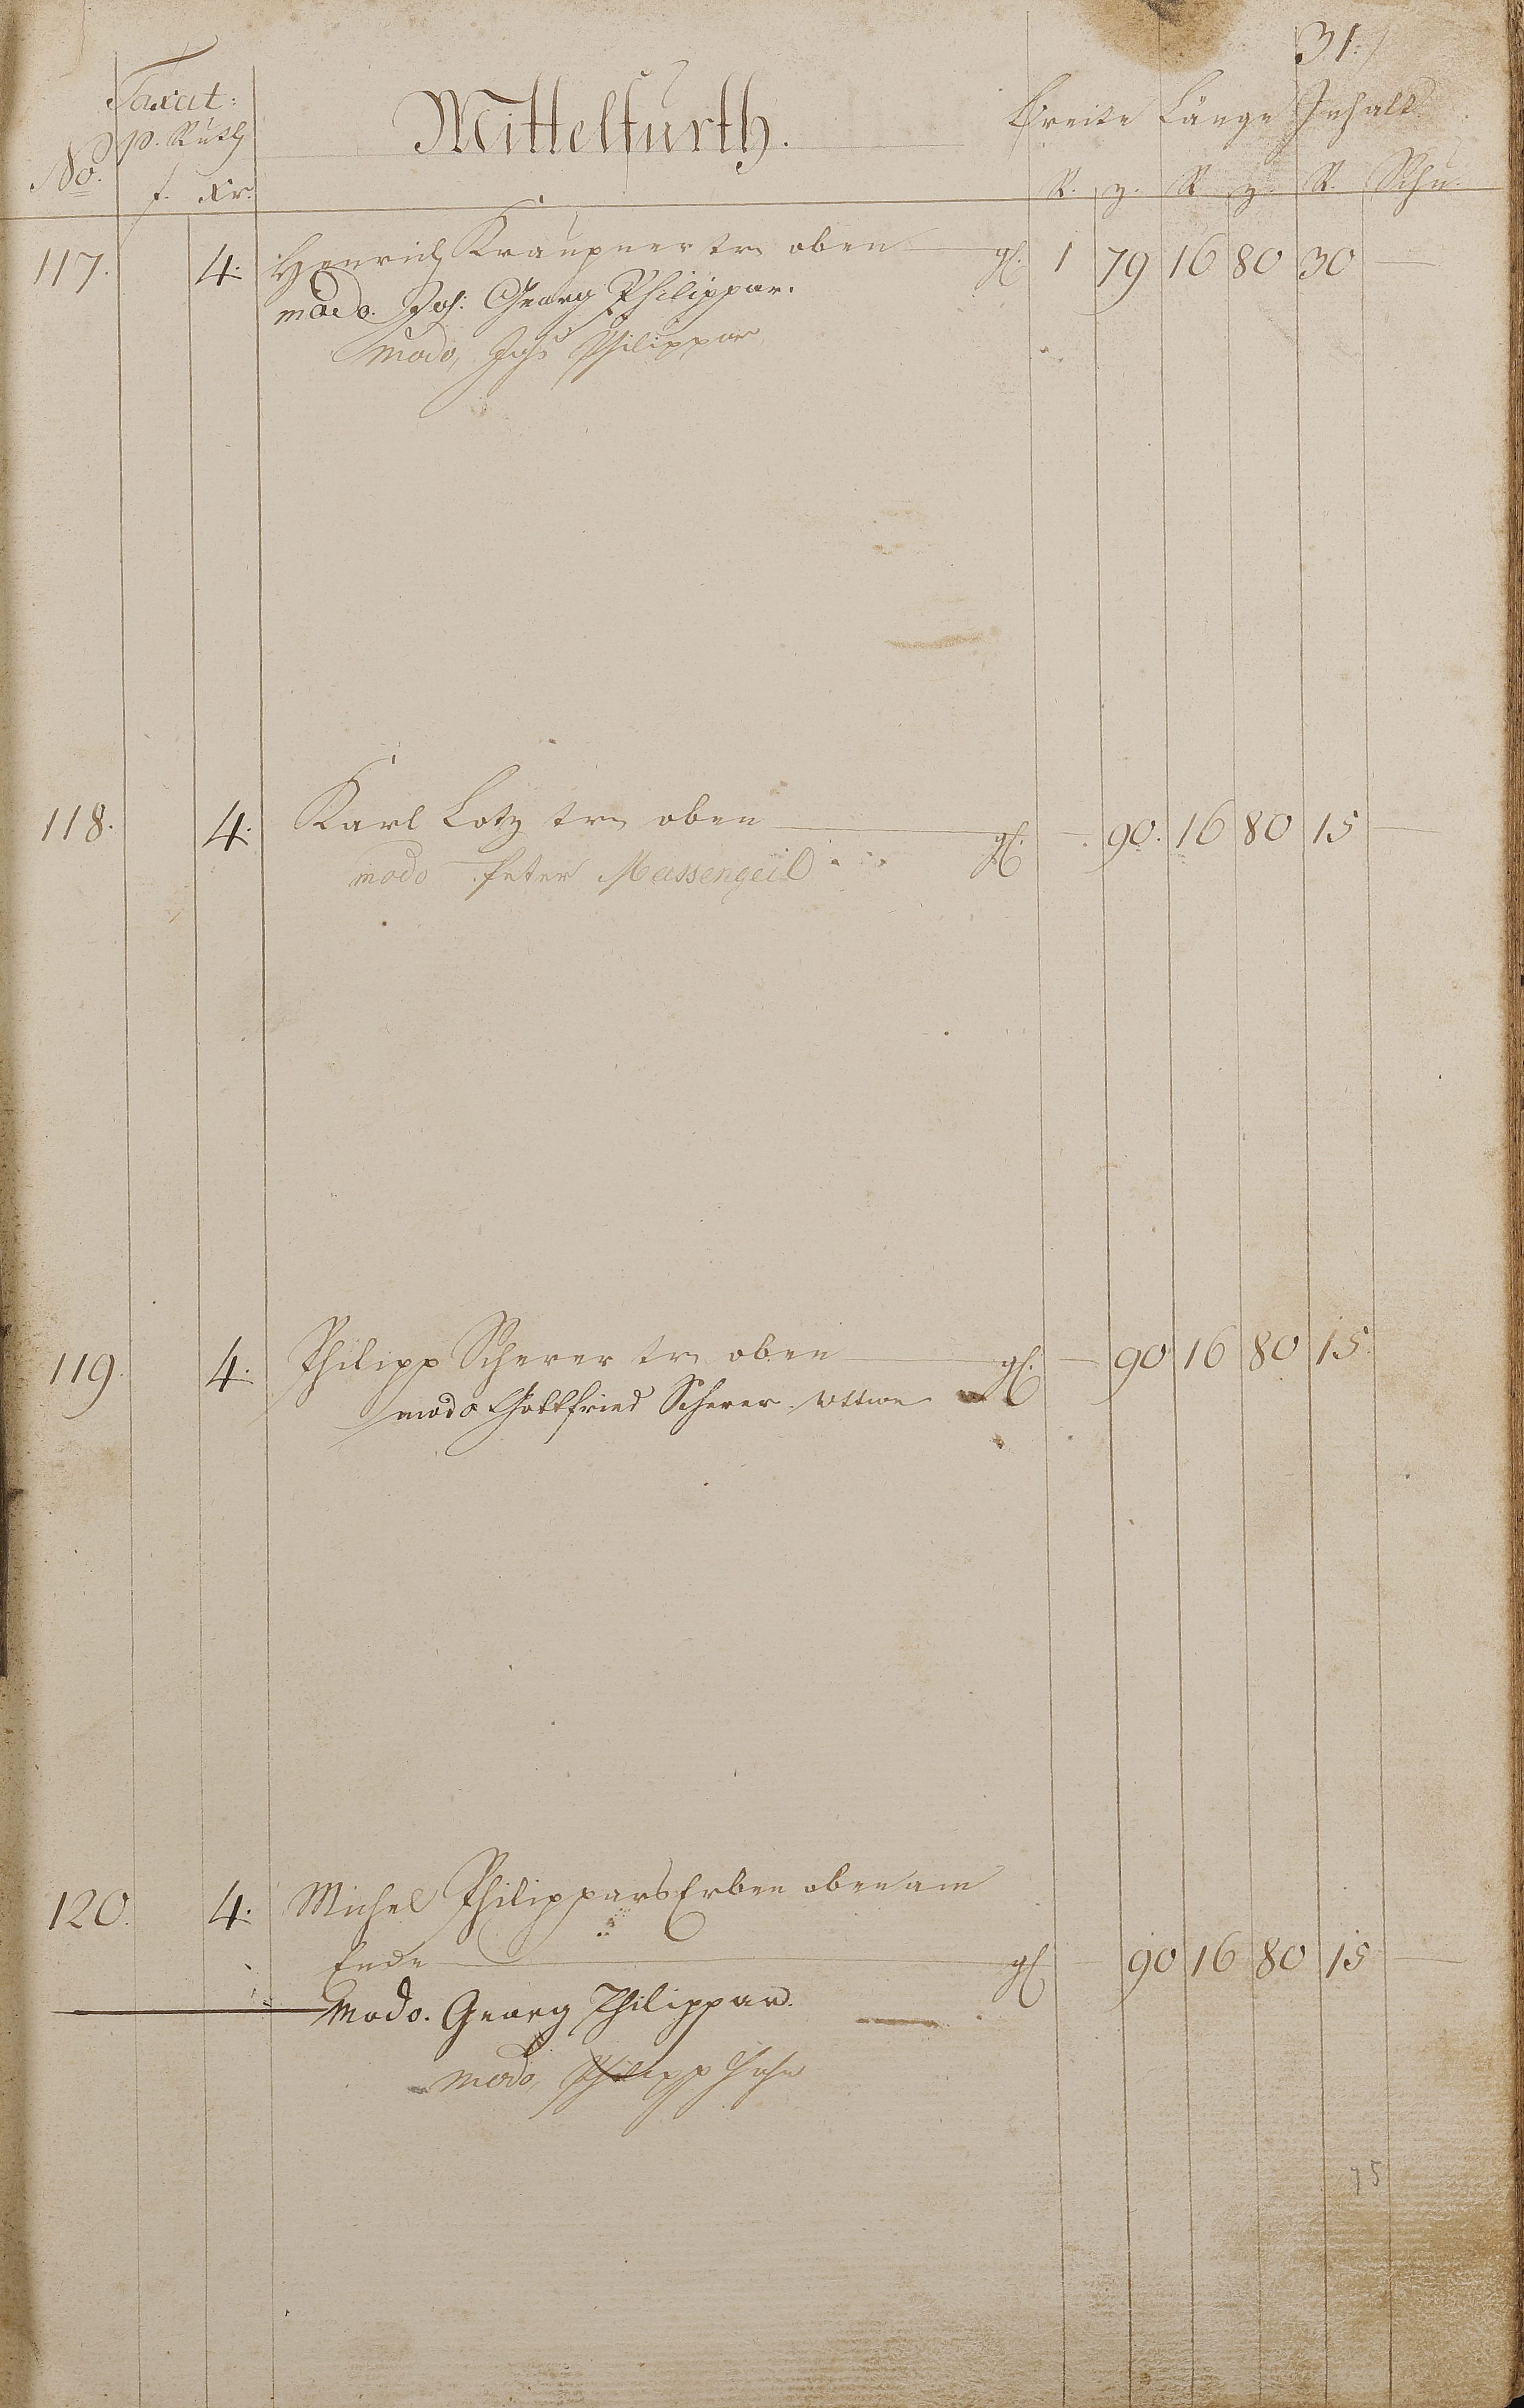 31.
Taxat: Mittelfurth. Breite Länge Inhalt
No. p. Ruth
f. Xr. R. z. R z. R. Schu.
117. 4. Henrich Kraupner tr. oben gl. 1 79 16 80 30 —
modo. Joh: Georg Philippar.
modo, Johs Philippar
118. 4. Karl Lotz tr. oben gl. — 90. 16 80 15 —
modo Peter Massengeil
119. 4. Philipp Scherer tr. oben gl. — 90 16 80 15.
modo Gottfried Scherer Wittwe
120. 4. Michel Philippars Erben oben am
Ende gl. — 90 16 80 15 —
Modo. Georg Philippar.
modo, Philipp
75